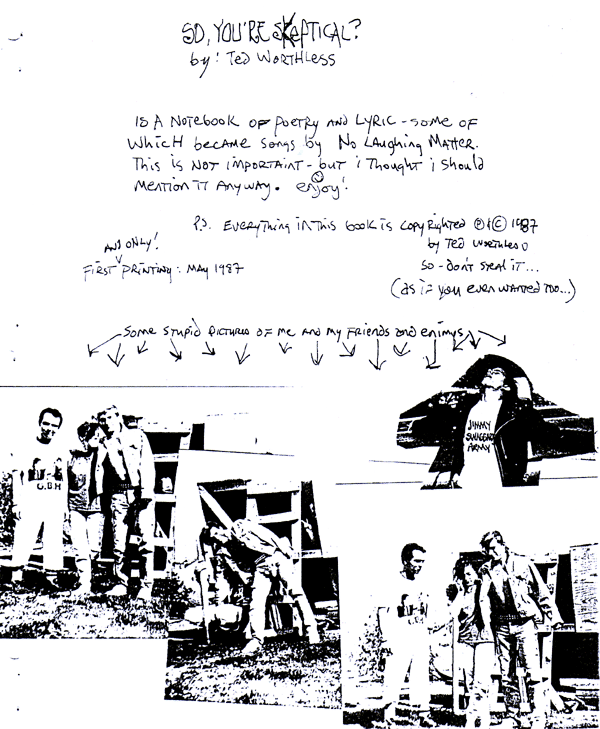 SO, YOU'RE SKEPTICAL?
by: TED WORTHLESS
IS A NOTEBOOK OF POETRY AND LYRIC - SOME OF
WHICH became songs by No LAUGHING MATTER.
This is NOT IMPORTAINT - but i Thought i should
MENTION IT ANYWAY. enjoy!
P.S. EVERYTHING IN THIS book IS copyrighted ℗ & © 1987
by TED WORTHLESS
SO - DON'T STEAL IT...
(as if you even wanted too...)
AND ONLY!
FIRST PRINTING: MAY 1987
SOME STUPID PICTURES OF ME AND MY FRIENDS and enimys
JIMMY
SWAGGART
ARMY
G.B.H